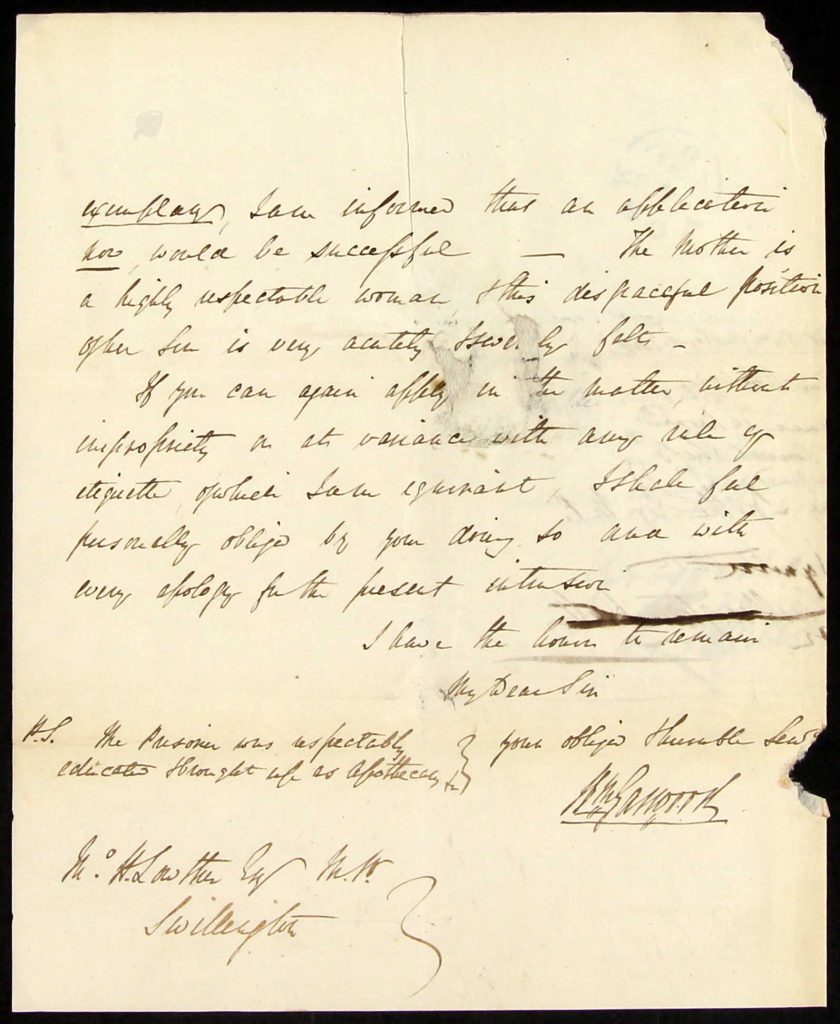 exemplary, I am informed that an application
now, would be successful — The Mother is
a highly respectable woman, & this disgraceful position
of her Son is very acutely & severely felt –
If you can again apply in the matter, without
impropriety or at variance with any rule of
etiquette, of which I am ignorant I shall feel
personally obliged by your doing so and with
every apology for the present intrusion
I have the honor to remain
My Dear Sir
your obliged Humble Servt
P.S. The Prisoner was respectably
educated & brought up as Apothecary &c
H. Lowther Esq M.P.
Swillington